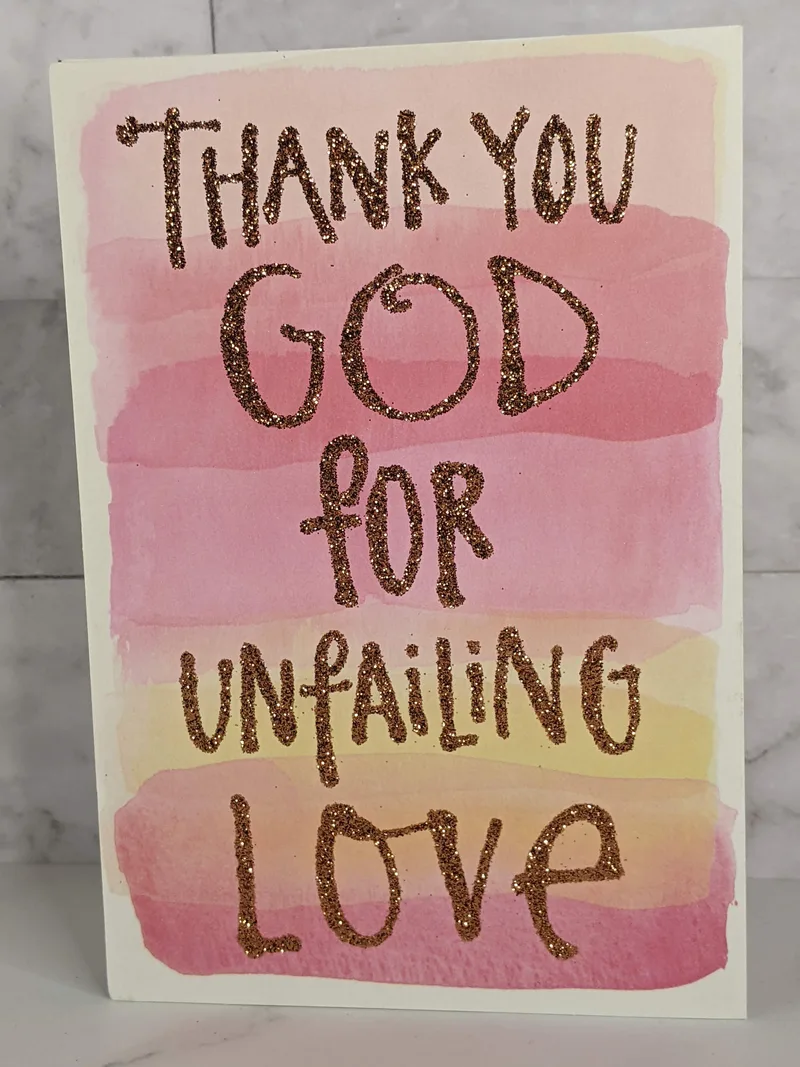 THANK YOU
GOD
fOR
UNfAiLiNG
LOVe